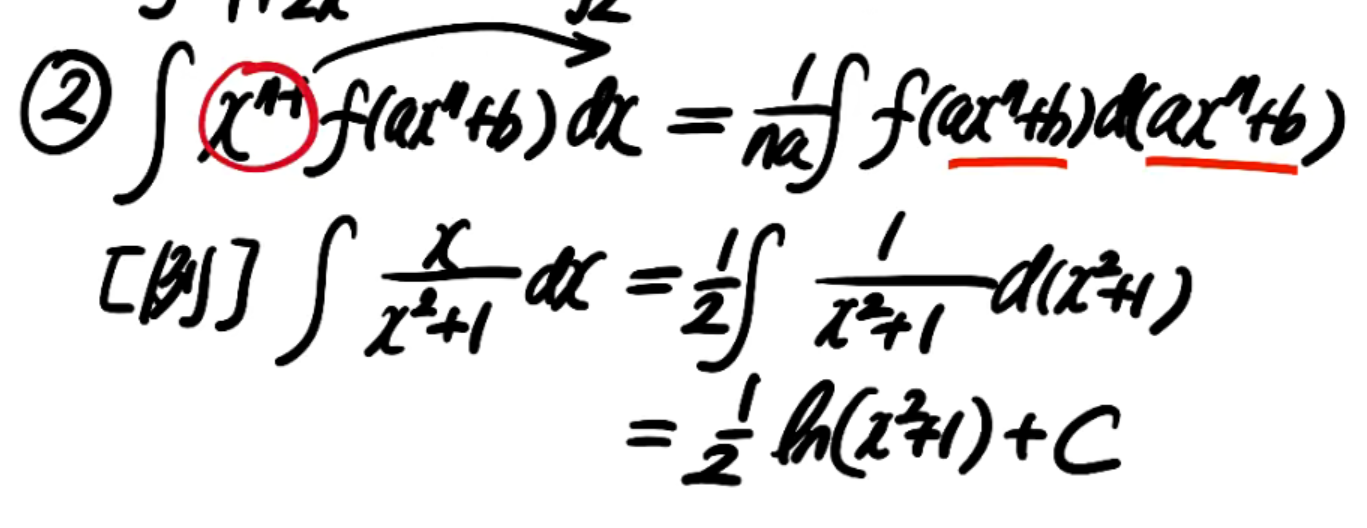 ② ∫ xⁿ⁻¹ f(axⁿ+b) dx = 1/(na) ∫ f(axⁿ+b) d(axⁿ+b)
[例] ∫ x/(x²+1) dx = 1/2 ∫ 1/(x²+1) d(x²+1)
= 1/2 ln(x²+1) + C